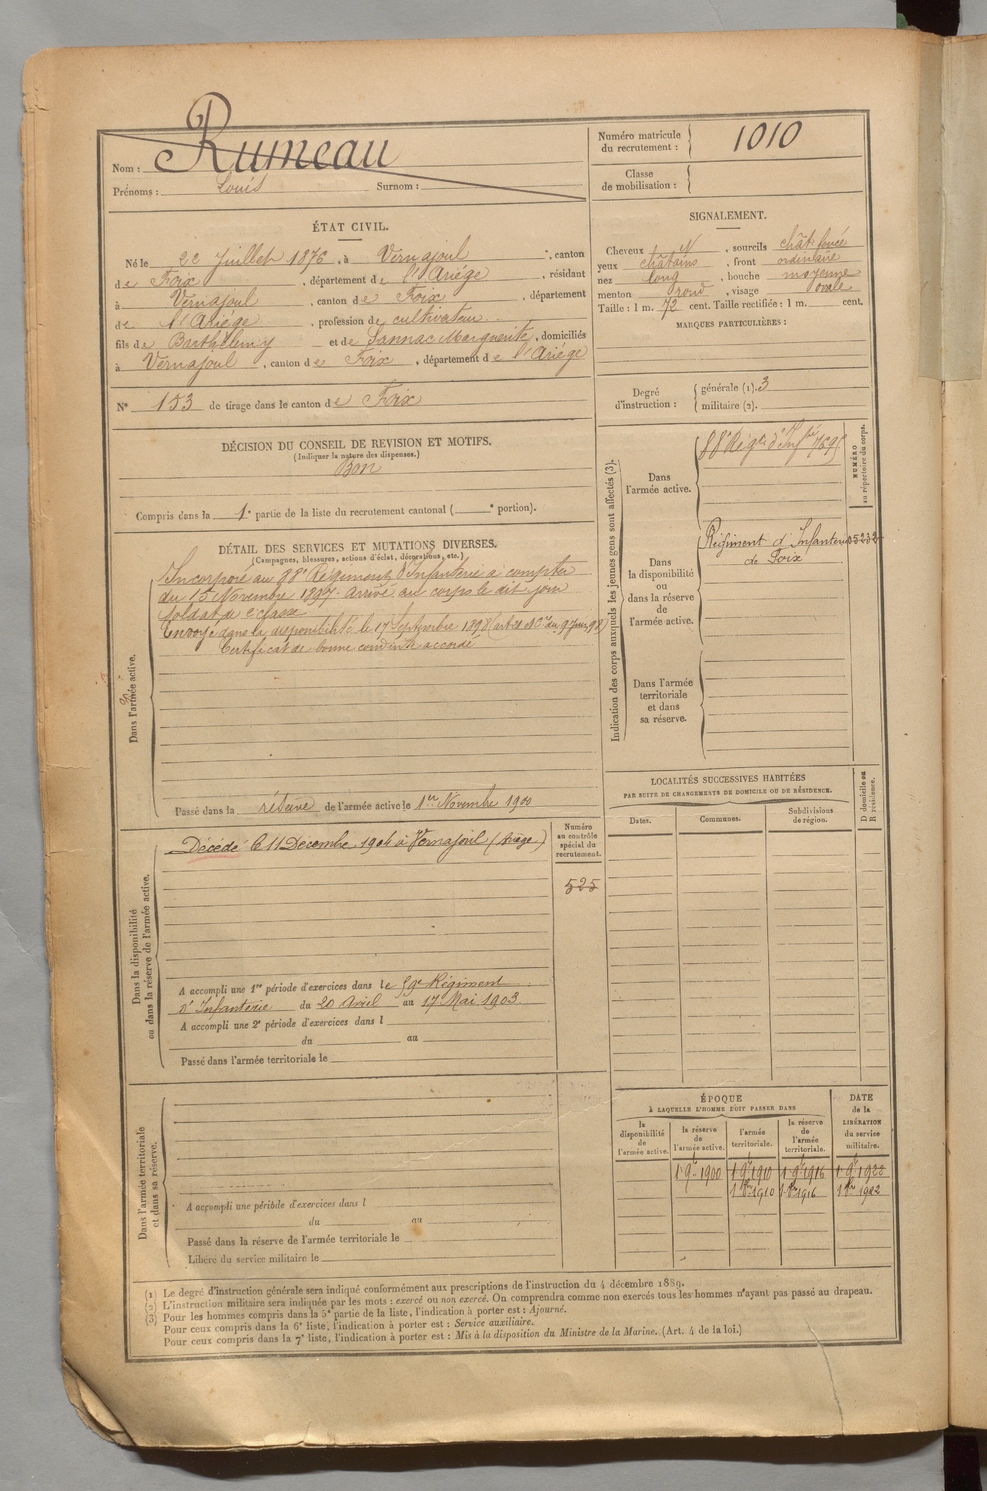 Nom : Rumeau
Prénoms : Louis Surnom :
Numéro matricule du recrutement : 1010
Classe de mobilisation :
ÉTAT CIVIL.
Né le 22 Juillet 1876, à Vernajoul, canton
de Foix, département de l'Ariège, résidant
à Vernajoul, canton de Foix, département
de l'Ariège, profession de cultivateur
fils de Barthélemy et de Sannac Marguerite, domiciliés
à Vernajoul, canton de Foix, département de l'Ariège
N° 153 de tirage dans le canton de Foix
SIGNALEMENT.
Cheveux N, sourcils chât. foncé
yeux châtains, front ordinaire
nez long, bouche moyenne
menton rond, visage ovale
Taille : 1 m. 72 cent. Taille rectifiée : 1 m. cent.
MARQUES PARTICULIÈRES :
Degré d'instruction : générale (1). 3
militaire (2).
DÉCISION DU CONSEIL DE REVISION ET MOTIFS.
(Indiquer la nature des dispenses.)
Bon
Compris dans la 1e partie de la liste du recrutement cantonal ( e portion).
DÉTAIL DES SERVICES ET MUTATIONS DIVERSES.
(Campagnes, blessures, actions d'éclat, décorations, etc.)
Dans l'armée active.
Incorporé au 88e Régiment d'Infanterie à compter
du 15 Novembre 1897. Arrivé au corps le dit jour
soldat de 2e classe
Envoyé dans la disponibilité le 17 Septembre 1898
Certificat de bonne conduite accordé
Passé dans la réserve de l'armée active le 1er Novembre 1900
Indication des corps auxquels les jeunes gens sont affectés (3).
NUMÉRO au répertoire du corps.
Dans l'armée active.
88e Régt d'Infie
Dans la disponibilité ou dans la réserve de l'armée active.
Régiment d'Infanterie
de Foix
Dans l'armée territoriale et dans sa réserve.
LOCALITÉS SUCCESSIVES HABITÉES
PAR SUITE DE CHANGEMENTS DE DOMICILE OU DE RÉSIDENCE.
Dates. Communes. Subdivisions de région. D domicile ou R résidence.
Dans la disponibilité ou dans la réserve de l'armée active.
Décédé le 11 Décembre 1904 à Vernajoul (Ariège)
Numéro au contrôle spécial du recrutement.
525
A accompli une 1re période d'exercices dans le 59e Régiment
d'Infanterie du 20 Avril au 17 Mai 1903.
A accompli une 2e période d'exercices dans l
du au
Passé dans l'armée territoriale le
Dans l'armée territoriale et dans sa réserve.
A accompli une période d'exercices dans l
du au
Passé dans la réserve de l'armée territoriale le
Libéré du service militaire le
ÉPOQUE
À LAQUELLE L'HOMME DOIT PASSER DANS
DATE de la LIBÉRATION du service militaire.
la disponibilité de l'armée active. la réserve de l'armée active. l'armée territoriale. la réserve de l'armée territoriale.
1 9bre 1900 1 9bre 1910 1 9bre 1916 1 9bre 1922
(1) Le degré d'instruction générale sera indiqué conformément aux prescriptions de l'instruction du 4 décembre 1889.
(2) L'instruction militaire sera indiquée par les mots : exercé ou non exercé. On comprendra comme non exercés tous les hommes n'ayant pas passé au drapeau.
(3) Pour les hommes compris dans la 5e partie de la liste, l'indication à porter est : Ajourné.
Pour ceux compris dans la 6e liste, l'indication à porter est : Service auxiliaire.
Pour ceux compris dans la 7e liste, l'indication à porter est : Mis à la disposition du Ministre de la Marine. (Art. 4 de la loi.)